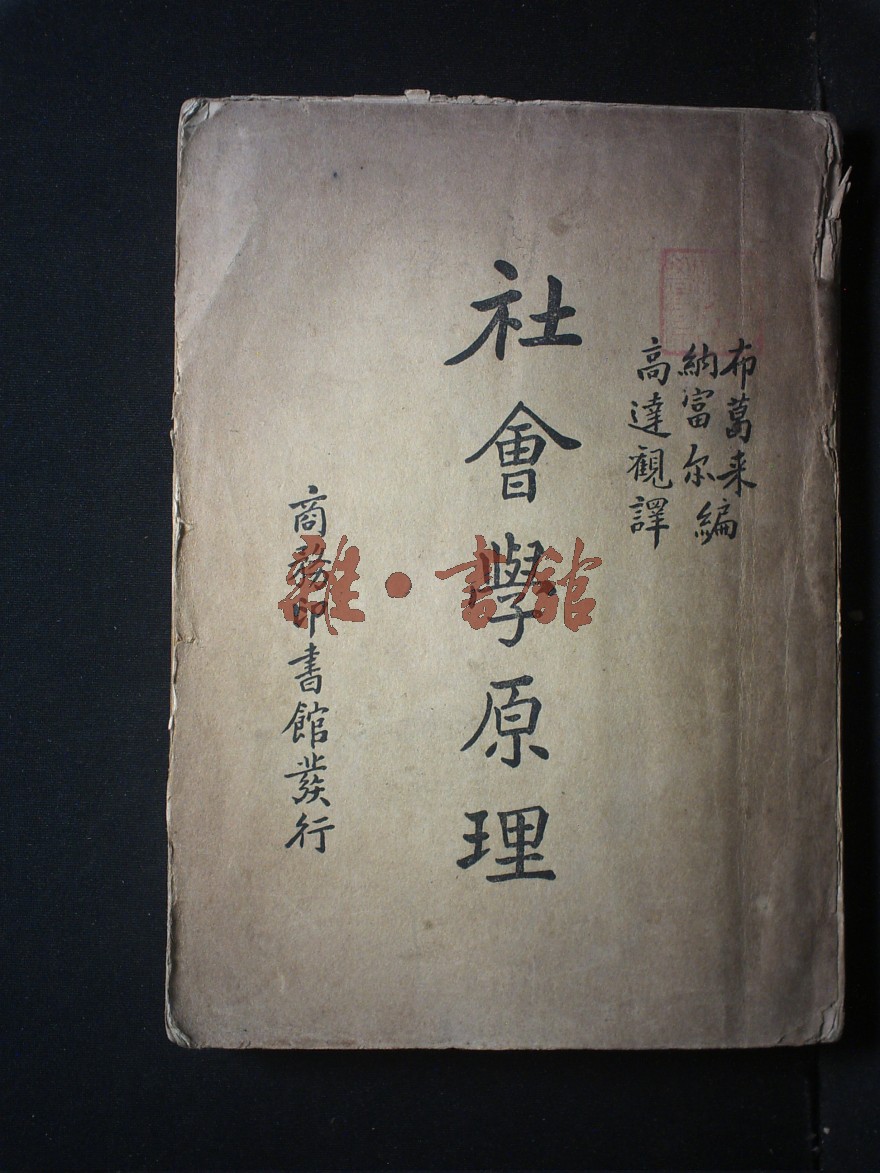 布葛来
納富尔編
高達觀譯
社會學原理
商務印書館發行
雜·書館